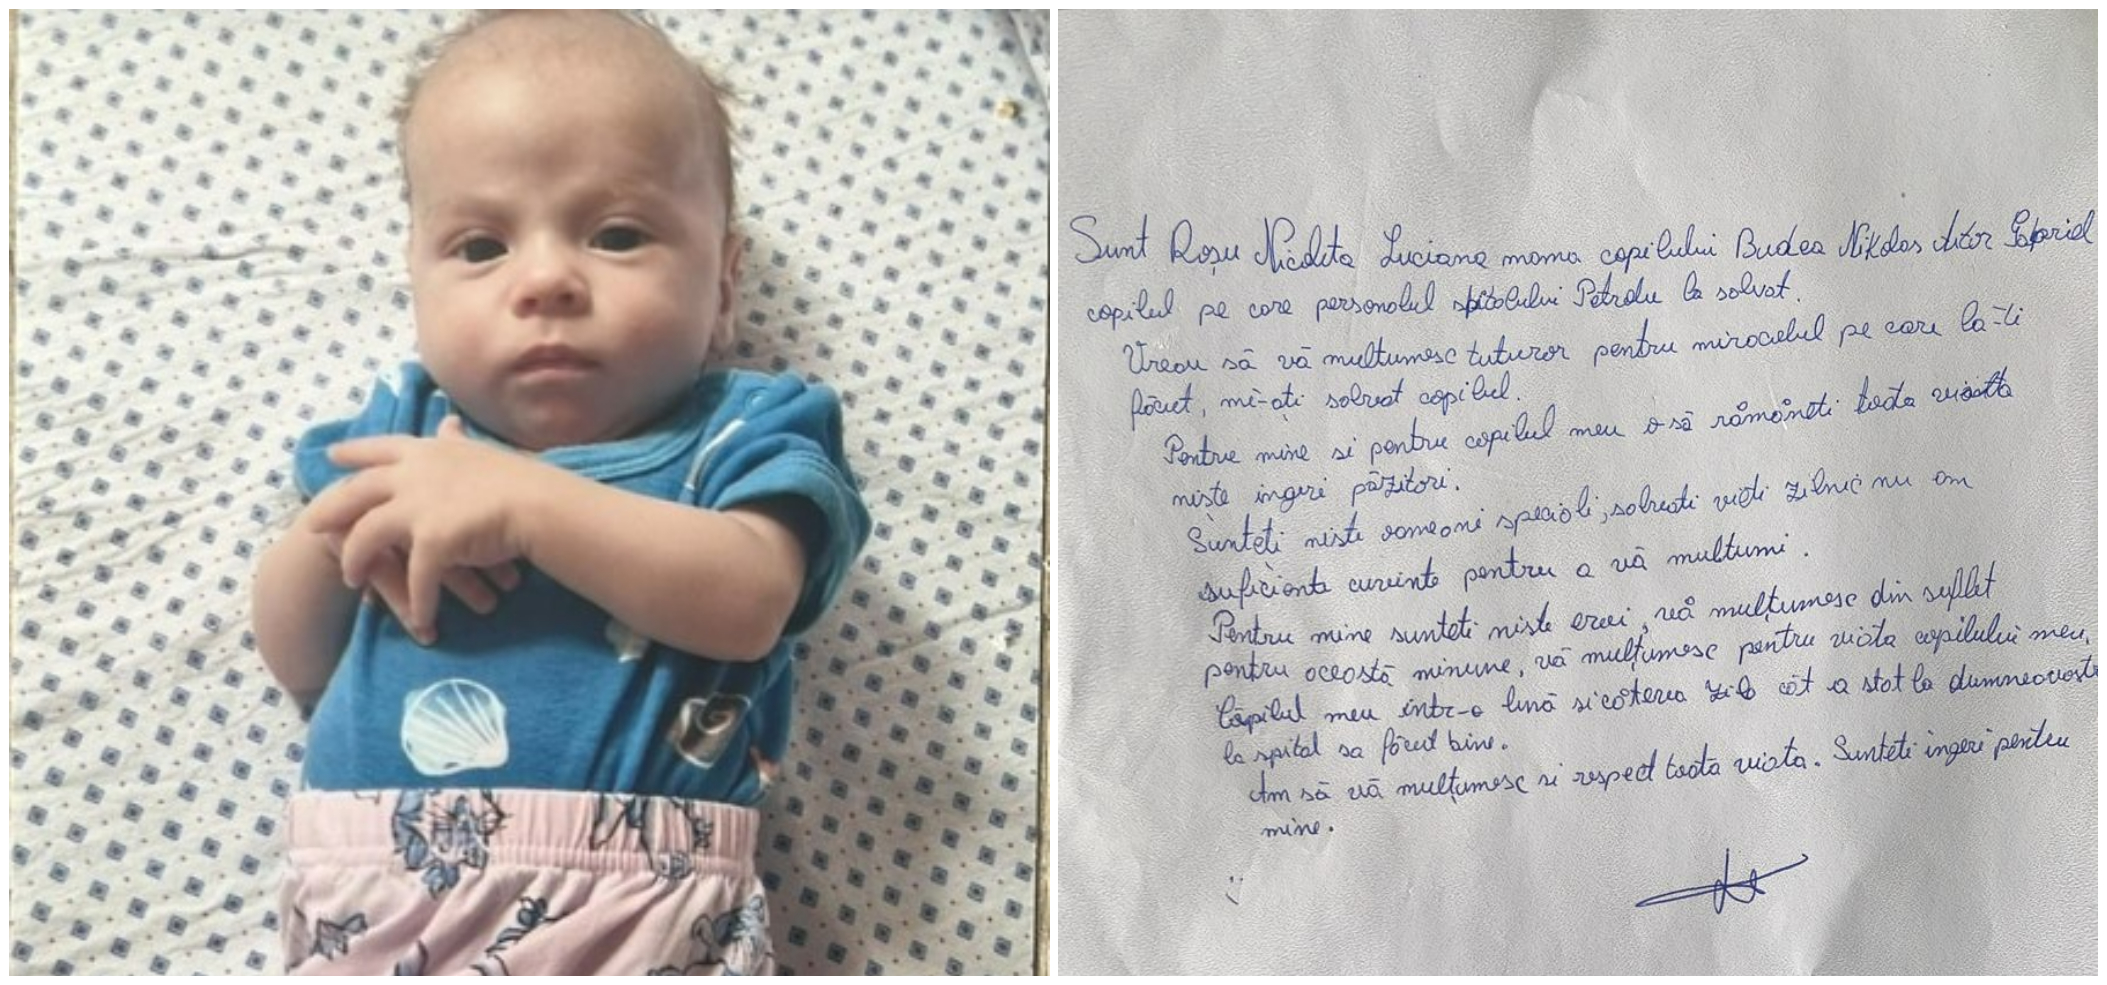 Sunt Roșu Nicoleta Luciana mama copilului Budea Nikolas Gabriel
copilul pe care personalul spitalului la salvat.
Vreau să vă multumesc tuturor pentru miracolul pe care la-ti
făcut, mi-ați salvat copilul.
Pentru mine si pentru copilul meu o să rămâneti toata viatta
niște ingeri păzitori.
Sunteți niste oameni speciali, salvati vieti zilnic nu am
suficiente cuvinte pentru a vă multumi.
Pentru mine sunteti niste eroi, vă mulțumesc din suflet
pentru această minune, vă mulțumesc pentru viata copilului meu,
Copilul meu intr-o lună si câteva zile cât a stat la
la spital sa făcut bine.
Am să vă mulțumesc si respect toată viata. Sunteti ingeri pentru
mine.